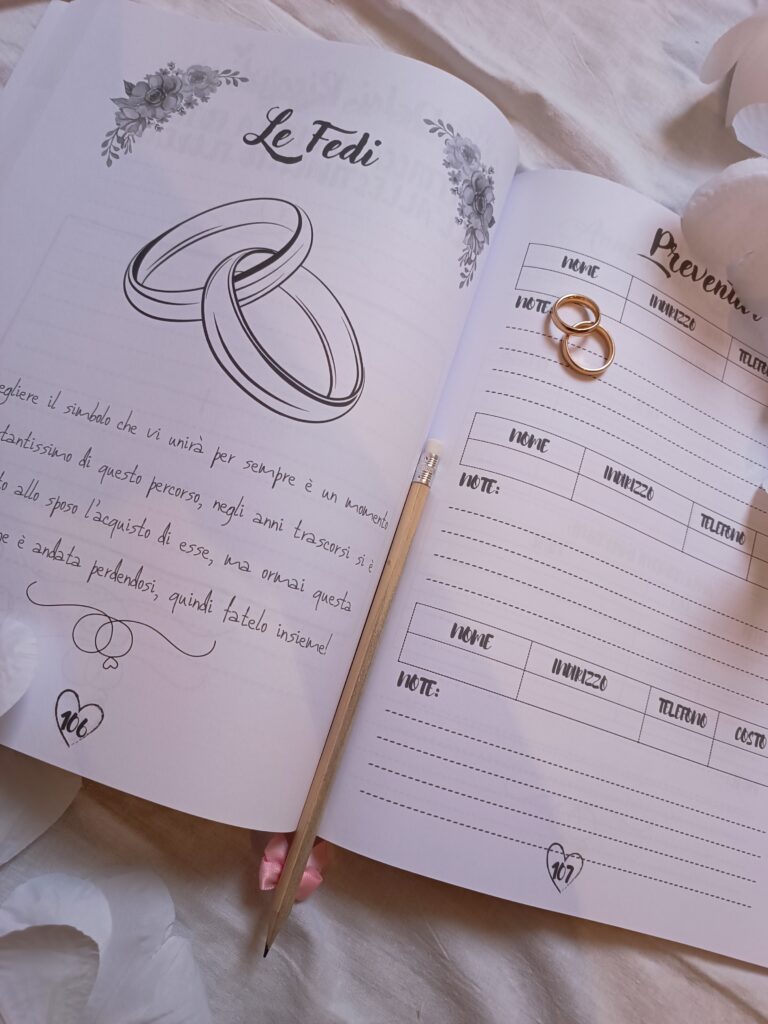 Le Fedi
il simbolo che vi unirà per sempre è un momento
di questo percorso, negli anni trascorsi si è
allo sposo l'acquisto di esse, ma ormai questa
è andata perdendosi, quindi fatelo insieme!
106
NOME INDIRIZZO
NOTE:
NOME INDIRIZZO TELEFONO
NOTE:
NOME INDIRIZZO TELEFONO COSTO
NOTE:
107